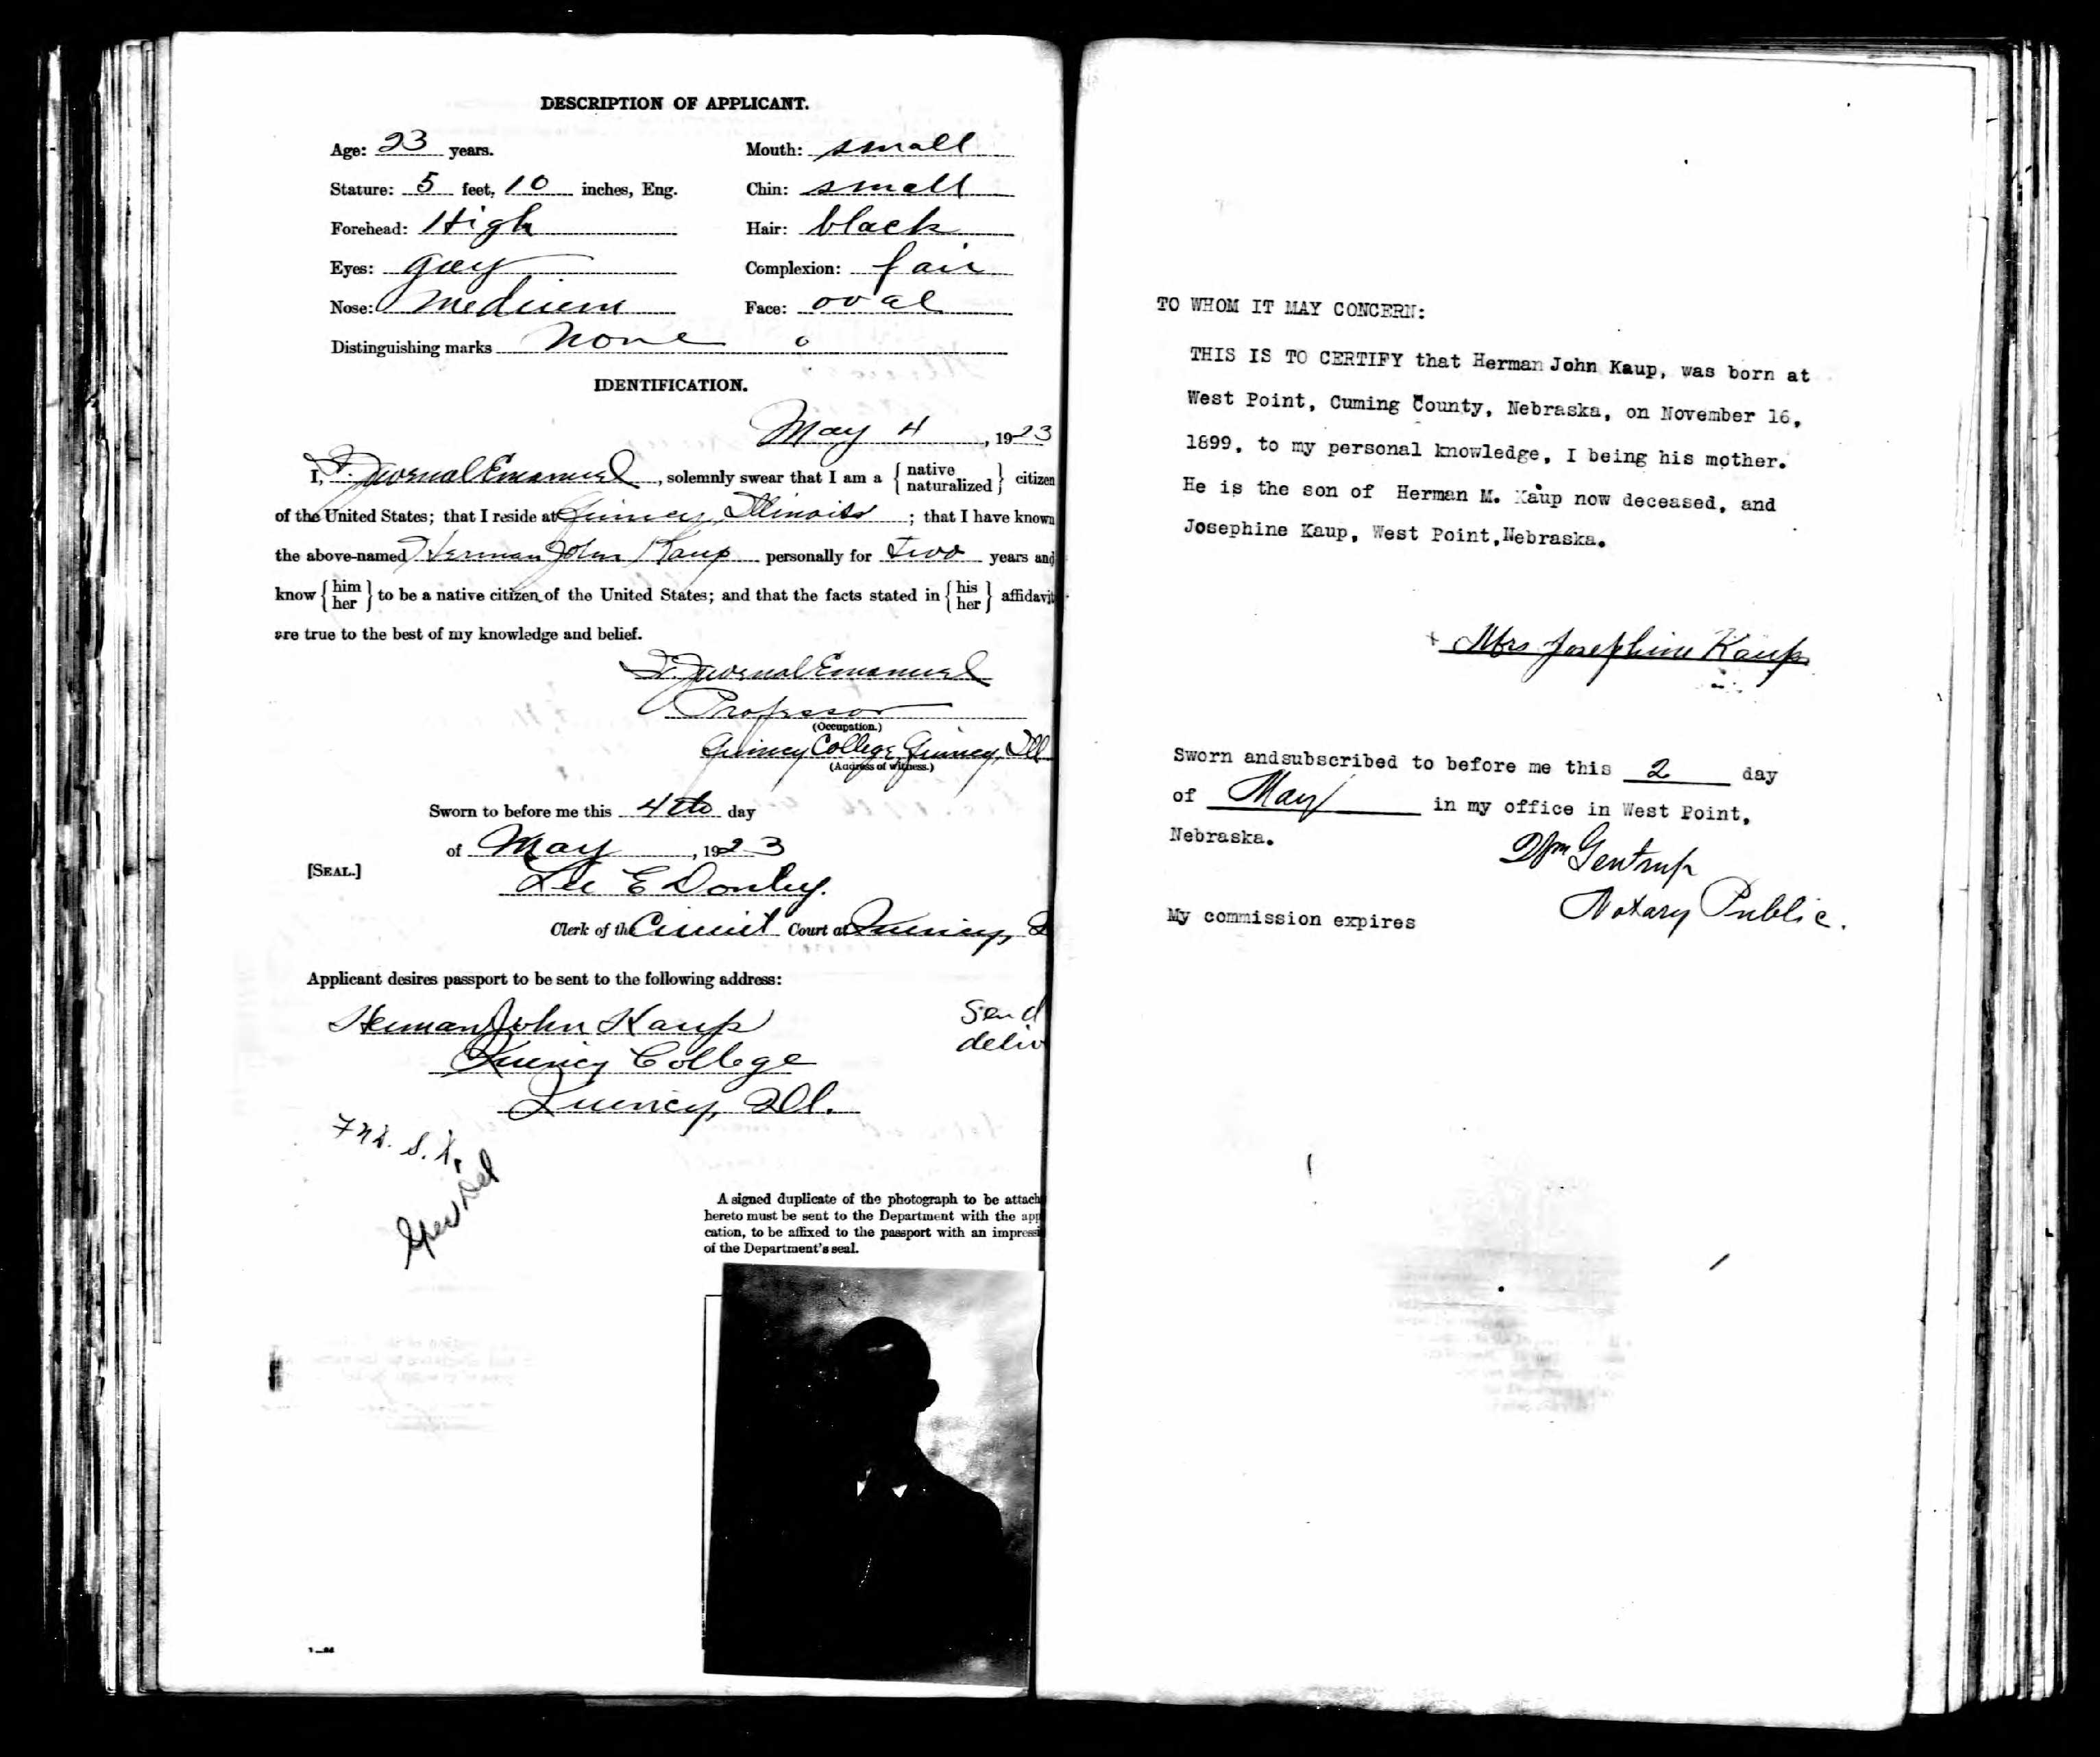 DESCRIPTION OF APPLICANT.
Age: 23 years.
Mouth: small
Stature: 5 feet, 10 inches, Eng.
Chin: small
Forehead: High
Hair: black
Eyes: gray
Complexion: fair
Nose: medium
Face: oval
Distinguishing marks none
IDENTIFICATION.
May 4, 1923
I, Juvenal Emanuel, solemnly swear that I am a {native naturalized} citizen
of the United States; that I reside at Quincy, Illinois; that I have known
the above-named Herman John Kaup personally for two years and
know {him her} to be a native citizen of the United States; and that the facts stated in {his her} affidavit
are true to the best of my knowledge and belief.
Juvenal Emanuel
Professor
(Occupation.)
Quincy College, Quincy, Ill
(Address of witness.)
Sworn to before me this 4th day
of May, 1923
[SEAL.]
Lee E Donley.
Clerk of the Circuit Court at Quincy,
Applicant desires passport to be sent to the following address:
Herman John Kaup
Quincy College
Quincy, Ill.
Send
deliv
A signed duplicate of the photograph to be attach
hereto must be sent to the Department with the app
cation, to be affixed to the passport with an impressi
of the Department's seal.
TO WHOM IT MAY CONCERN:
THIS IS TO CERTIFY that Herman John Kaup, was born at
West Point, Cuming County, Nebraska, on November 16,
1899, to my personal knowledge, I being his mother.
He is the son of Herman M. Kaup now deceased, and
Josephine Kaup, West Point, Nebraska.
+ Mrs Josephine Kaup
Sworn andsubscribed to before me this 2 day
of May in my office in West Point,
Nebraska.
Wm Gentrup
Notary Public.
My commission expires